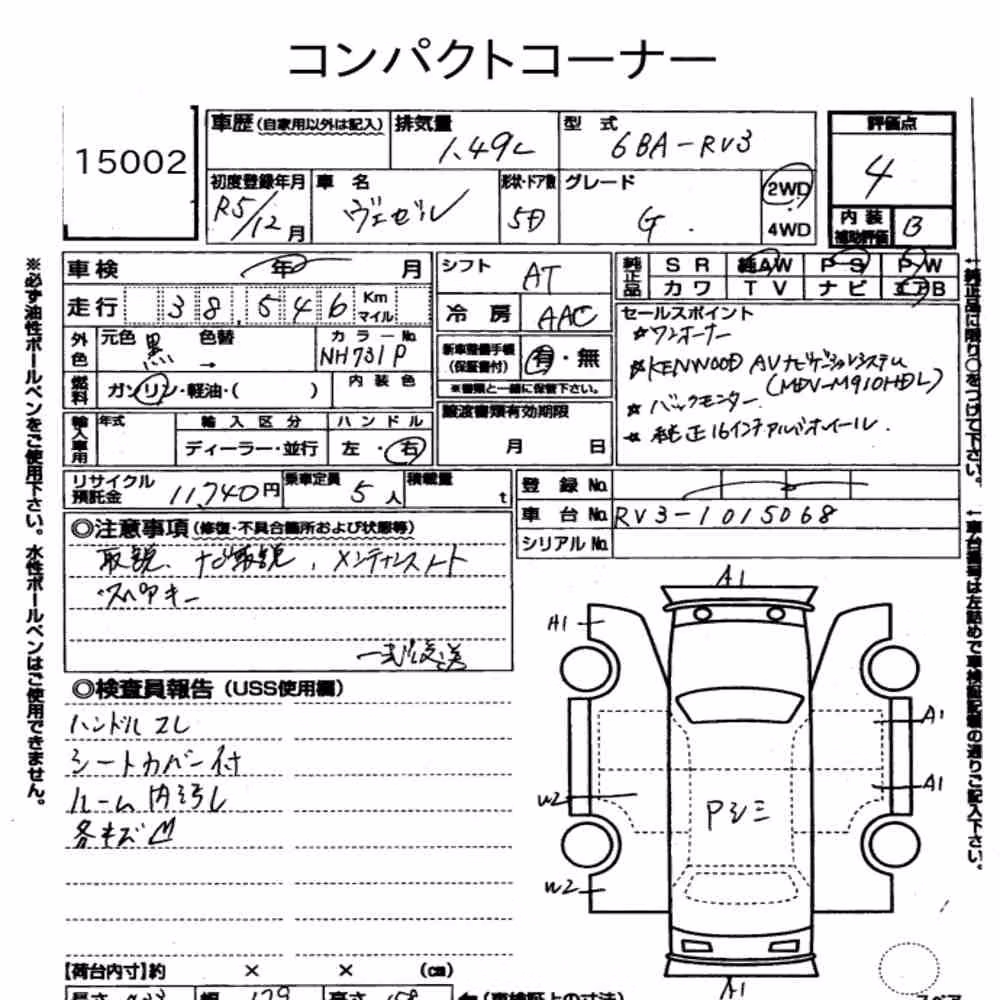 コンパクトコーナー
15002
車歴(自家用以外は記入) 排気量 1.49L 型式 6BA-RV3 評価点 4
初度登録年月 R5/12月 車名 ヴェゼル 形状・ドア数 5D グレード G. 2WD 4WD 内装補助評価 B
車検 年 月 シフト AT 純正品 SR 純AW PS PW
カワ TV ナビ エアB
走行 38,546 Km マイル 冷房 AAC
セールスポイント
☆ワンオーナー
☆KENWOOD AVナビゲーションシステム
(MDV-M910HDL)
☆バックモニター
☆純正16インチアルミホイール.
外色 元色 黒 色替 → カラーNo. NH731P
新車整備手帳(保証書付) 有・無
※書類と一緒に保管下さい。
燃料 ガソリン・軽油・( ) 内装色
輸入車用 年式 輸入区分 ディーラー・並行 ハンドル 左・右
譲渡書類有効期限 月 日
リサイクル預託金 11,740円 乗車定員 5人 積載量 t
登録No.
車台No. RV3-1015068
シリアルNo.
◎注意事項(修復・不具合箇所および状態等)
取説、ナビ取説、メンテナンスノート
スペアキー
◎検査員報告(USS使用欄)
ハンドルスレ
シートカバー付
ルーム内汚れ
各キズ凹
A1
A1
A1
A1
W2
Pシミ
W2
A1
【荷台内寸】約 × × (cm)
長さ 幅 179 高さ 158 ←(車検証上の寸法)
スペア
※必ず油性ボールペンをご使用下さい。水性ボールペンはご使用できません。
↑純正品に限り○をつけて下さい。
↑車台番号は左詰めで車検証記載の通りご記入下さい。